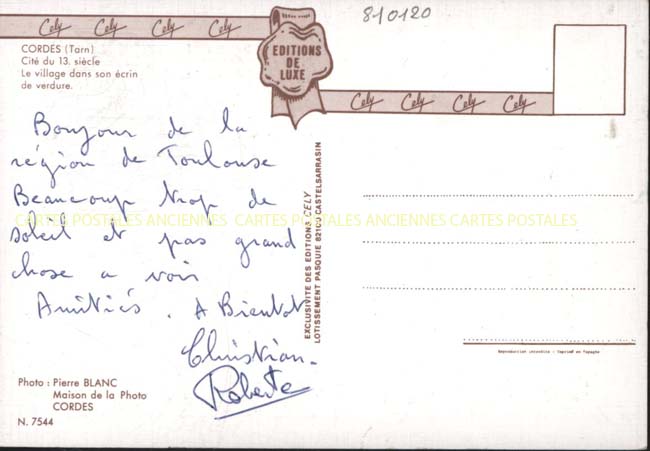 Cely Cely Cely Cely
EDITIONS
DE
LUXE
810120
CORDES (Tarn)
Cité du 13. siècle
Le village dans son écrin
de verdure.
Cely Cely Cely Cely
Bonjour de la
région de Toulouse
Beaucoup trop de
soleil et pas grand
chose a voir
Amitiés. A Bientot
Christian.
Roberte
CARTES POSTALES ANCIENNES CARTES POSTALES ANCIENNES CARTES POSTALES
EXCLUSIVITE DES EDITIONS CELY
LOTISSEMENT PASQUIE 82100 CASTELSARRASIN
Reproduction interdite - Imprimé en Espagne
Photo : Pierre BLANC
Maison de la Photo
CORDES
N. 7544